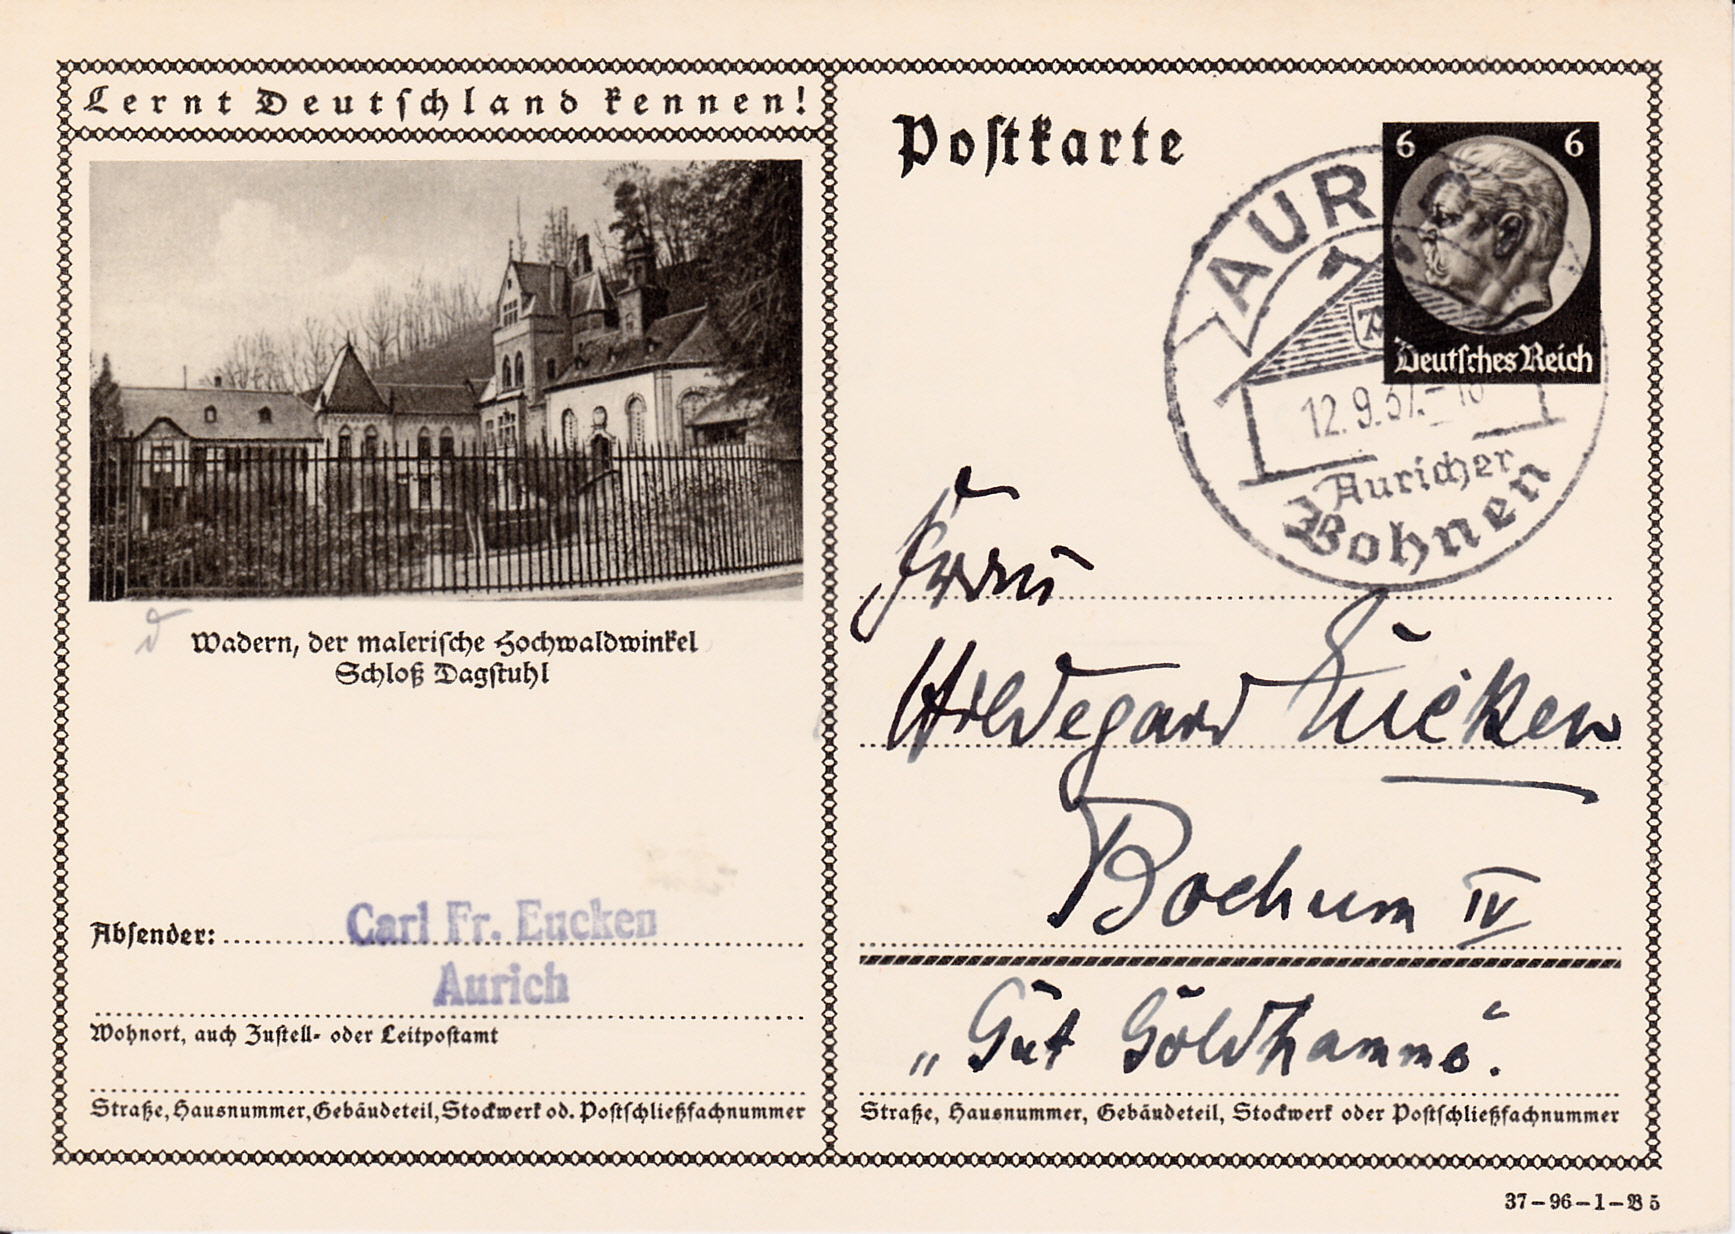 Lernt Deutschland kennen!
Wadern, der malerische Hochwaldwinkel
Schloß Dagstuhl
Absender:
Carl Fr. Eucken
Aurich
Wohnort, auch Zustell- oder Leitpostamt
Straße, Hausnummer, Gebäudeteil, Stockwerk od. Postschließfachnummer
Postkarte
6 6
Deutsches Reich
AURIC
12.9.37.-18
Auricher
Bohnen
Frau
Hildegard Eucken
Bochum IV
„Gut Goldhamme".
Straße, Hausnummer, Gebäudeteil, Stockwerk oder Postschließfachnummer
37-96-1-B5